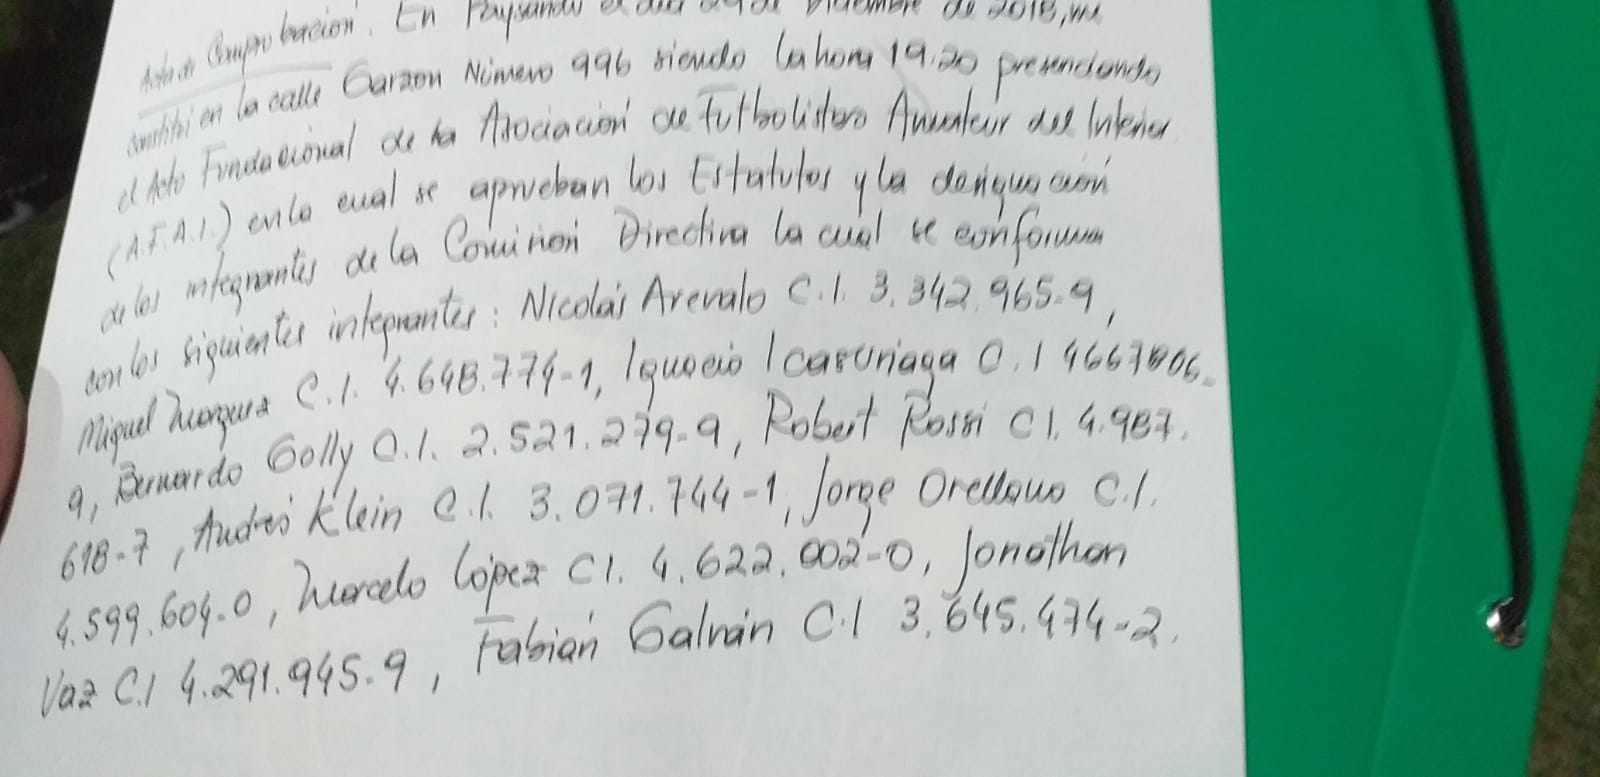 Acta de Comprobación. En Paysandú el día de Diciembre de 2018, me
constituí en la calle Garzon Número 996 siendo la hora 19.20 presenciando
el Acto Fundacional de la Asociación de Futbolistas Amateur del Interior
(A.F.A.I.) en lo cual se aprueban los Estatutos y la designación
de los integrantes de la Comisión Directiva la cual se conforman
con los siguientes integrantes: Nicolás Arevalo C.I. 3.342.965-9,
Miguel Marquez C.I. 4.648.774-1, Ignacio Icasuriaga C.I 4667806-
9, Bernardo Golly C.I. 2.521.279-9, Robert Rossi CI. 4.987.
618-7, Andrés Klein C.I. 3.071.744-1, Jorge Orellano C.I.
4.599.604-0, Marcelo López CI. 4.622.002-0, Jonathan
Vaz C.I 4.291.945-9, Fabián Galván C.I 3.645.474-2.